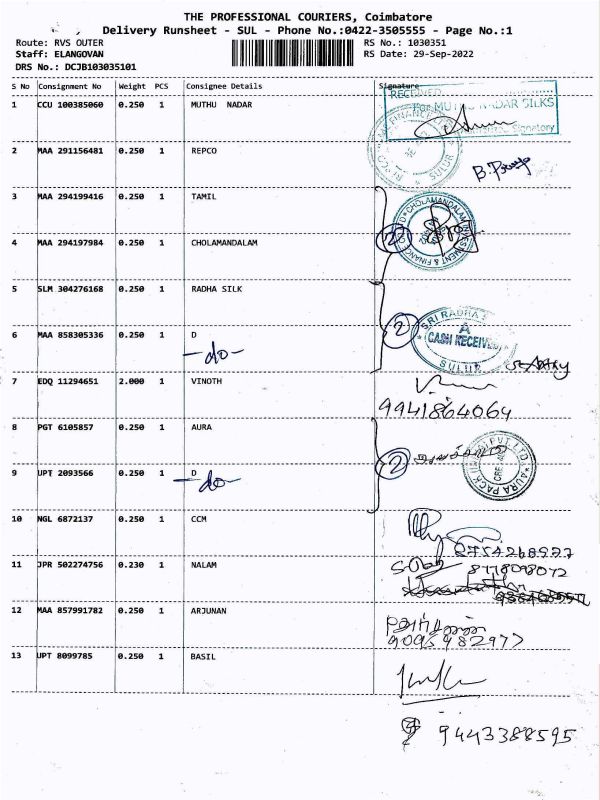 THE PROFESSIONAL COURIERS, Coimbatore
Delivery Runsheet - SUL - Phone No.:0422-3505555 - Page No.:1
Route: RVS OUTER RS No.: 1030351
Staff: ELANGOVAN RS Date: 29-Sep-2022
DRS No.: DCJB103035101
S No Consignment No Weight PCS Consignee Details Signature
1 CCU 100385060 0.250 1 MUTHU NADAR
RECEIVED
For MUTHU NADAR SILKS
Signatory
2 MAA 291156481 0.250 1 REPCO
SULUR
3 MAA 294199416 0.250 1 TAMIL
CHOLAMANDALAM INVESTMENT & FINANCE
2
4 MAA 294197984 0.250 1 CHOLAMANDALAM
5 SLM 304276168 0.250 1 RADHA SILK
2
SRI RADHA
A
CASH RECEIVED
SULUR
6 MAA 858305336 0.250 1 D
-do-
7 EDQ 11294651 2.000 1 VINOTH
9941864064
8 PGT 6105857 0.250 1 AURA
2
AURA PACK PVT LTD
9 UPT 2093566 0.250 1 D
-do-
10 NGL 6872137 0.250 1 CCM
11 JPR 502274756 0.230 1 NALAM
8778098072
12 MAA 857991782 0.250 1 ARJUNAN
9095982977
13 UPT 8099785 0.250 1 BASIL
9443388595